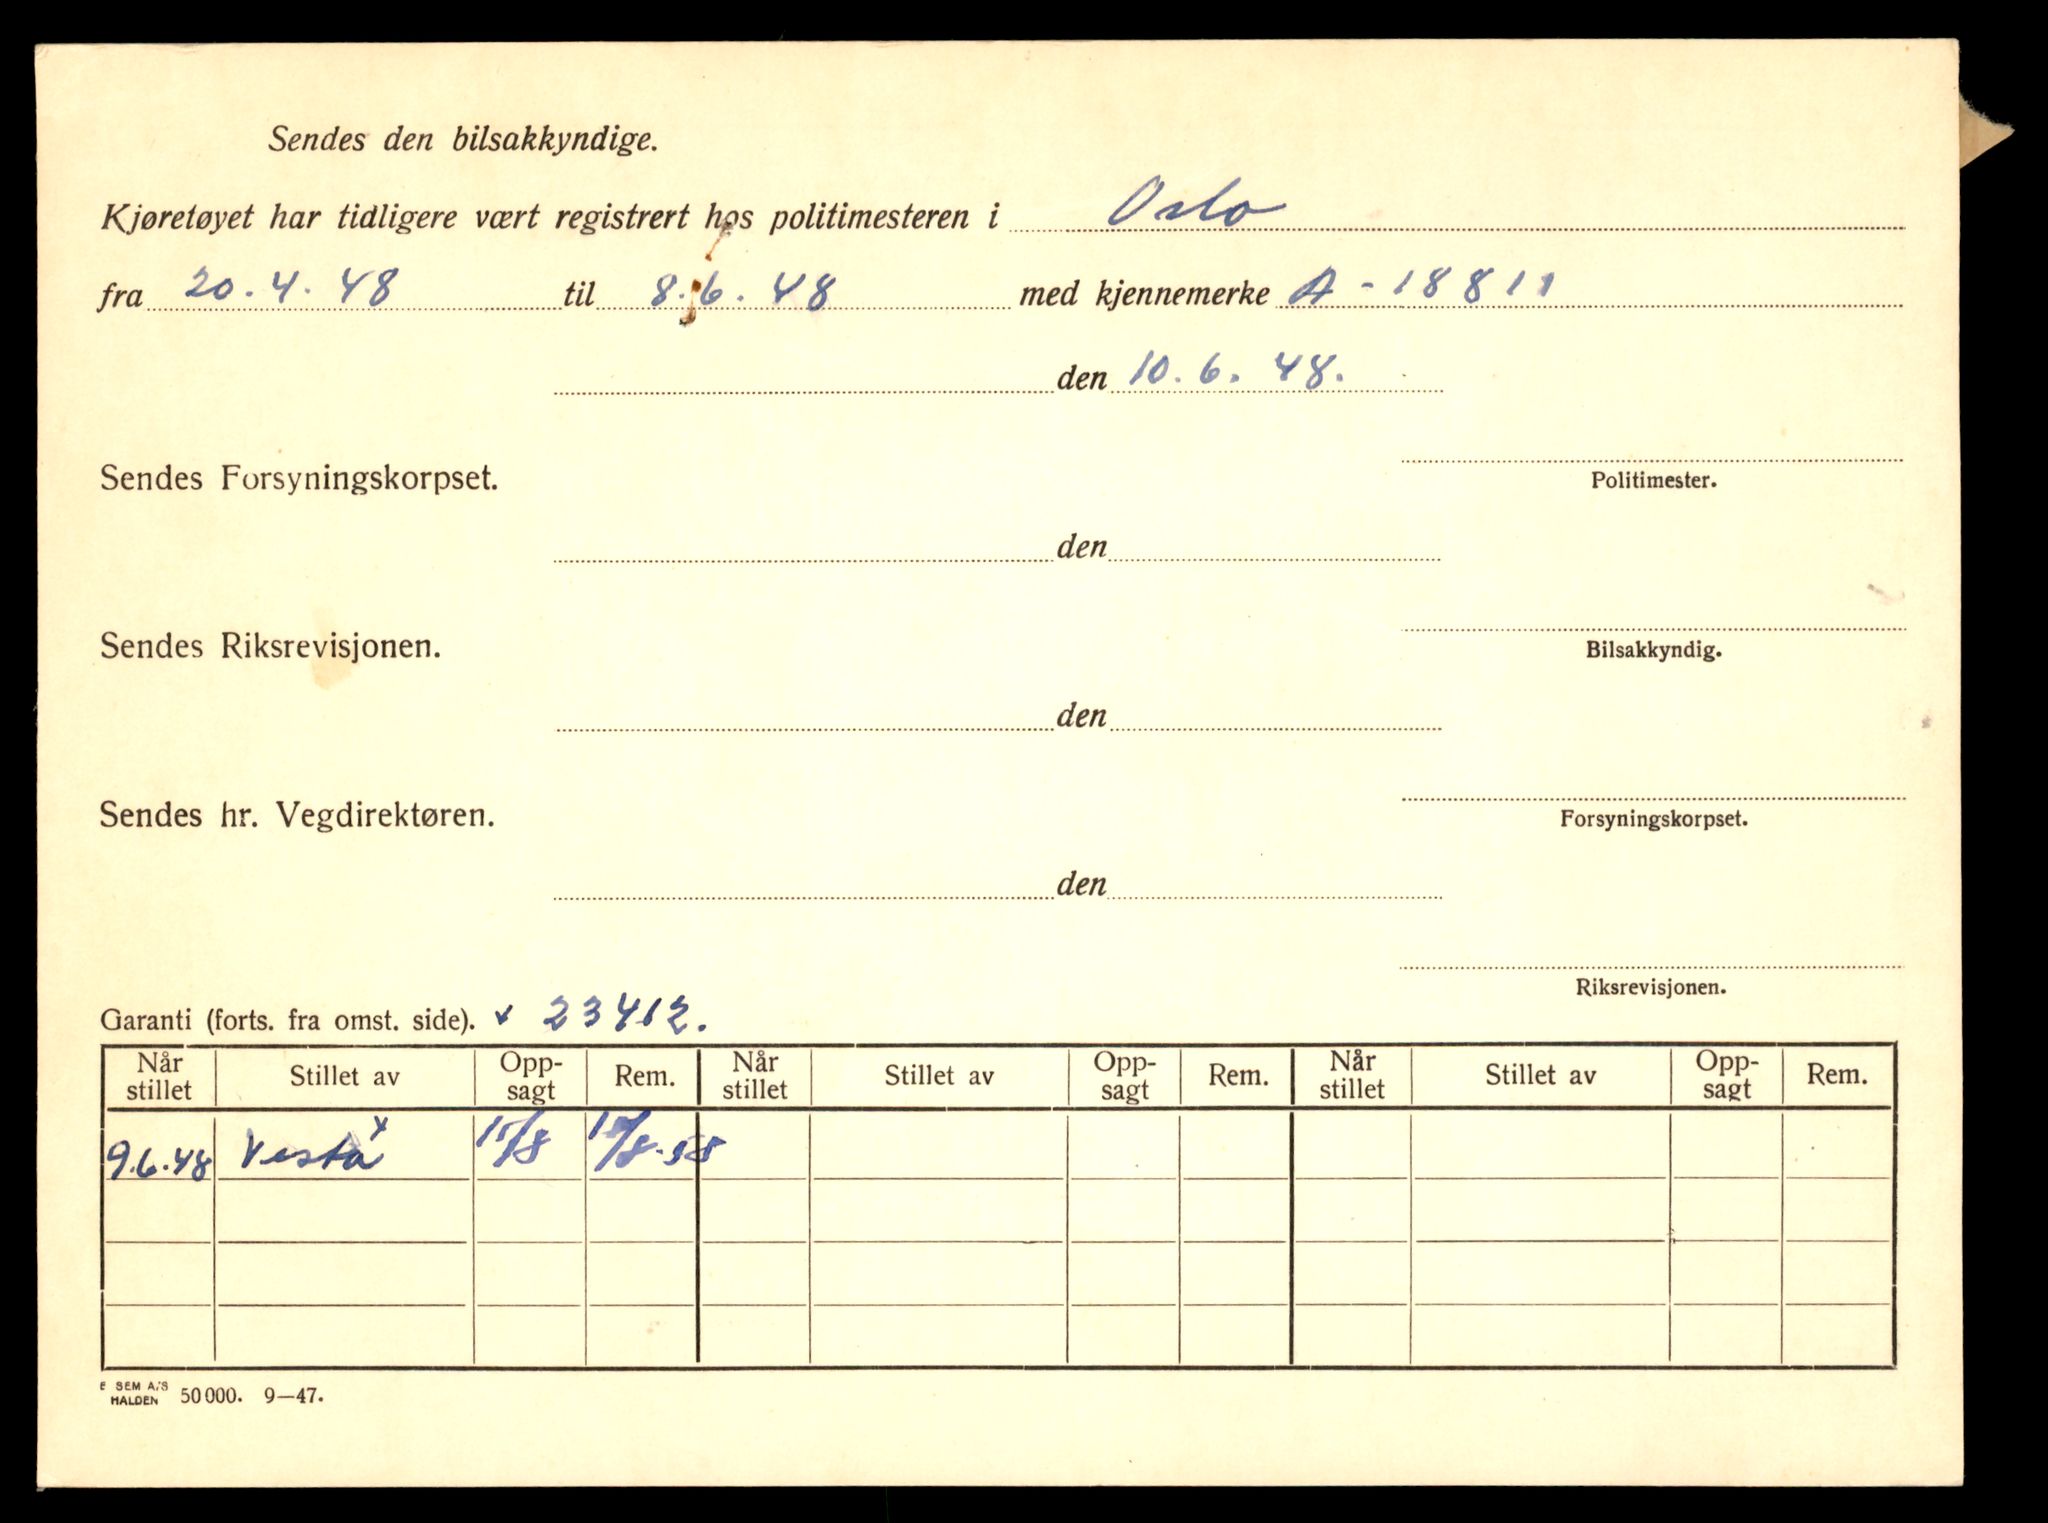 Sendes den bilsakkyndige.
Kjøretøyet har tidligere vært registrert hos politimesteren i Oslo
fra 20.4.48 til 8.6.48 med kjennemerke A-18811
den 10.6.48.
Sendes Forsyningskorpset.
Politimester.
den
Sendes Riksrevisjonen.
Bilsakkyndig.
den
Sendes hr. Vegdirektøren.
Forsyningskorpset.
den
Riksrevisjonen.
Garanti (forts. fra omst. side). x 23412.
Når stillet Stillet av Opp-sagt Rem. Når stillet Stillet av Opp-sagt Rem. Når stillet Stillet av Opp-sagt Rem.
9.6.48 Vesta x 15/8 15/8-58
E SEM A/S
HALDEN 50 000. 9—47.